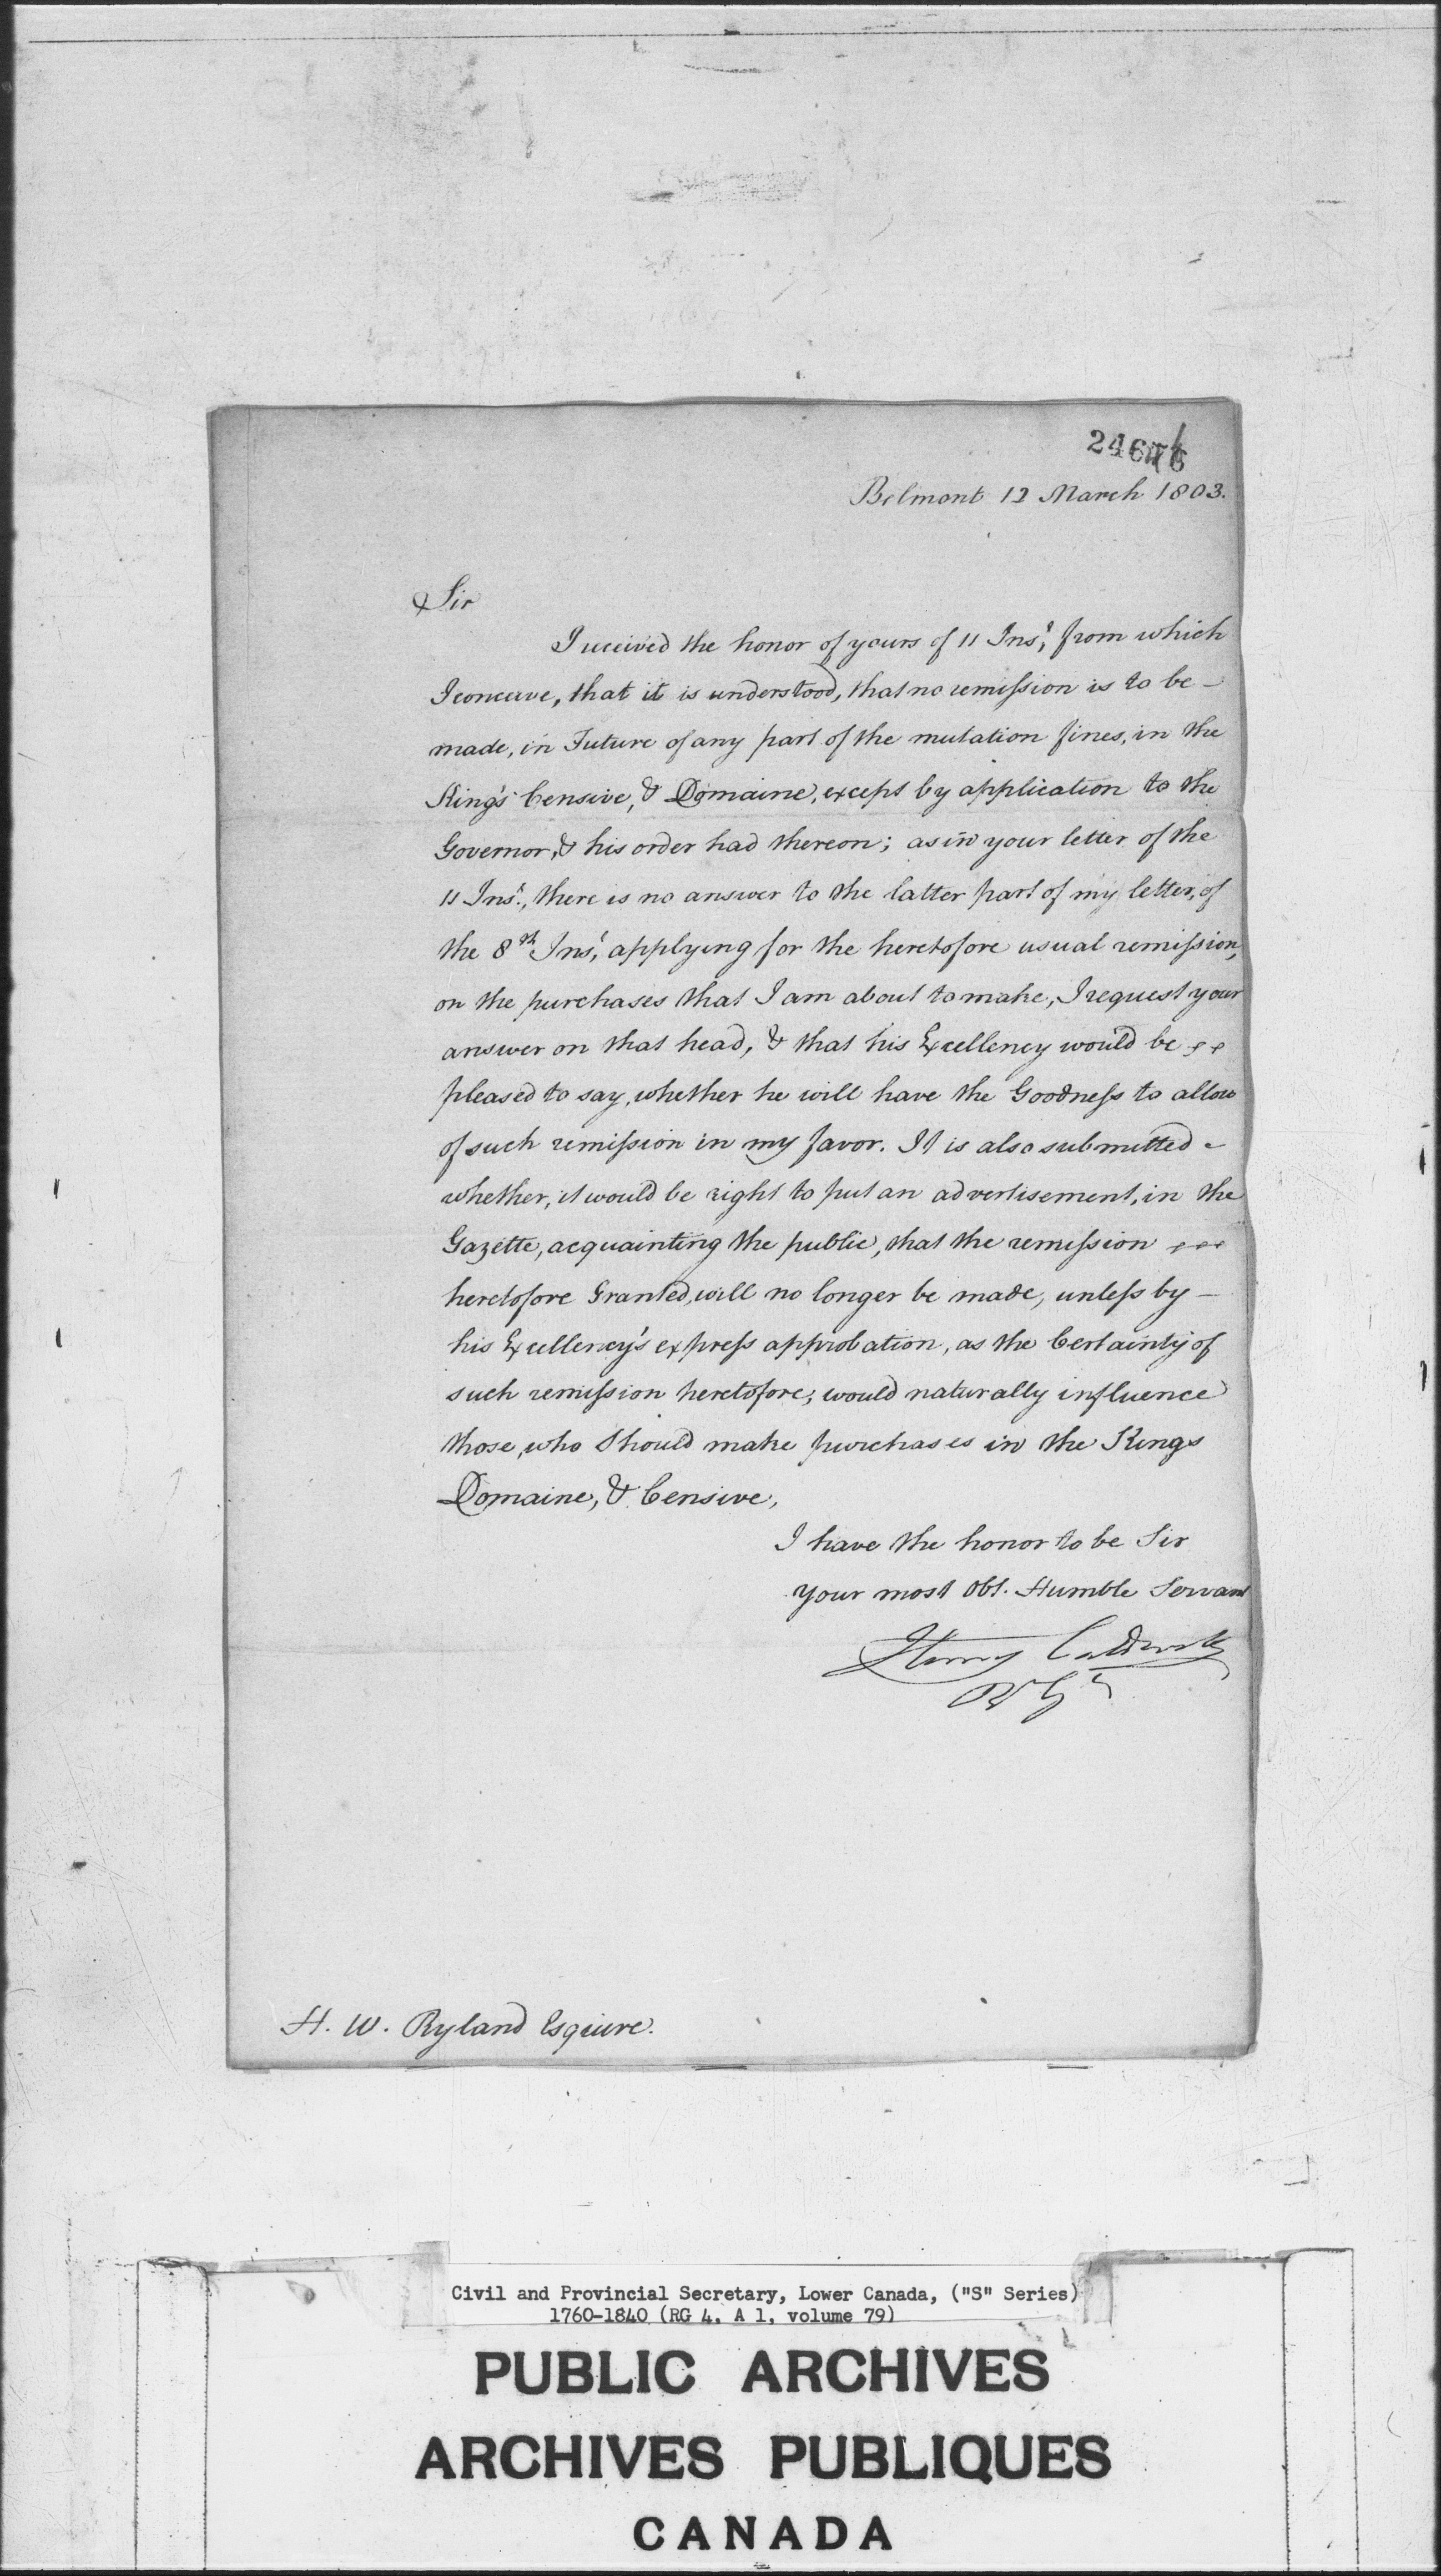 Belmont 12 March 1803.
Sir
I received the honor of yours of 11 Inst, from which
I conceive, that it is understood, that no remission is to be –
made, in Future of any part of the mutation fines, in the
King's Censive, & Domaine, except by application to the
Governor, & his order had thereon; as in your letter of the
11 Inst., there is no answer to the latter part of my letter, of
the 8th Inst, applying for the heretofore usual remission,
on the purchases that I am about to make, I request your
answer on that head, & that his Excellency would be
pleased to say, whether he will have the Goodness to allow
of such remission in my favor. It is also submitted –
whether, it would be right to put an advertisement, in the
Gazette, acquainting the public, that the remission
heretofore Granted, will no longer be made, unless by –
his Excellency's express approbation, as the Certainty of
such remission heretofore, would naturally influence
those, who should make purchases in the Kings
Domaine, & Censive,
I have the honor to be Sir
your most Obt. Humble Servant
Henry Caldwell
H. W. Ryland Esquire.
Civil and Provincial Secretary, Lower Canada, ("S" Series)
1760-1840 (RG 4, A 1, volume 79)
PUBLIC ARCHIVES
ARCHIVES PUBLIQUES
CANADA